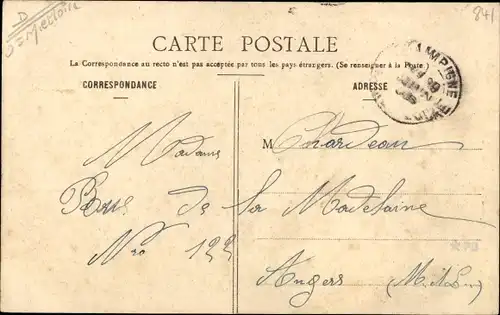 D
841
CARTE POSTALE
La Correspondance au recto n'est pas acceptée par tous les pays étrangers. (Se renseigner à la Poste)
CORRESPONDANCE
ADRESSE
Madame
M Chardeau
Rue de la Madelaine
Nro 122
Angers (M.&L.)